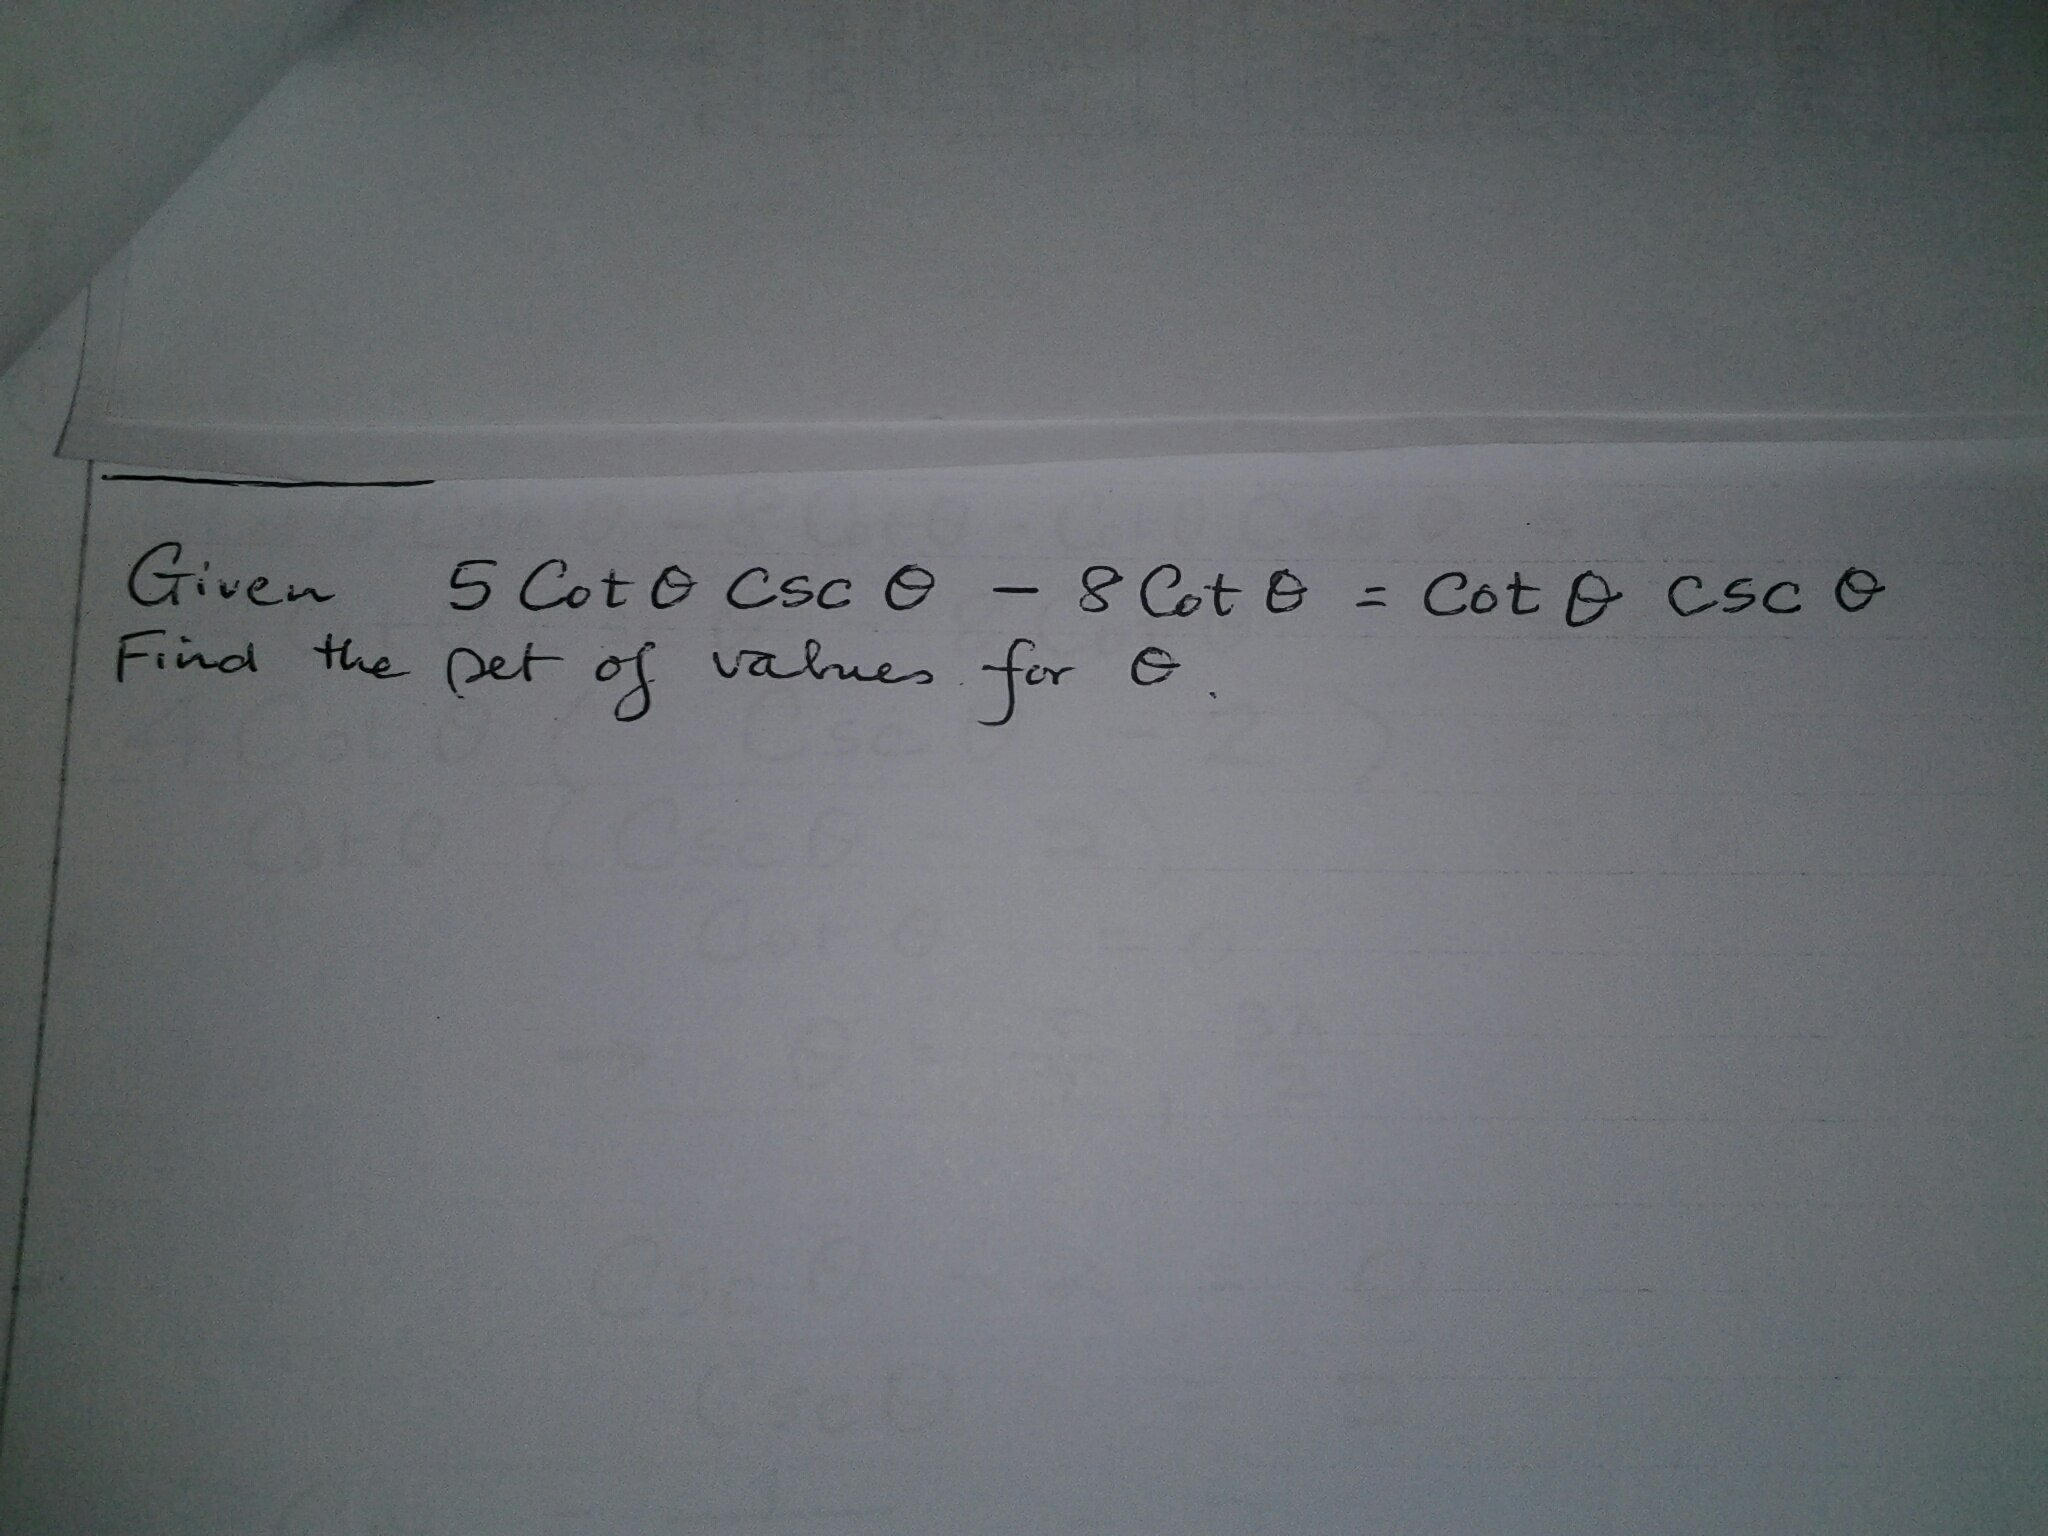 Given 5 Cot θ Csc θ - 8 Cot θ = Cot θ csc θ
Find the set of values for θ.